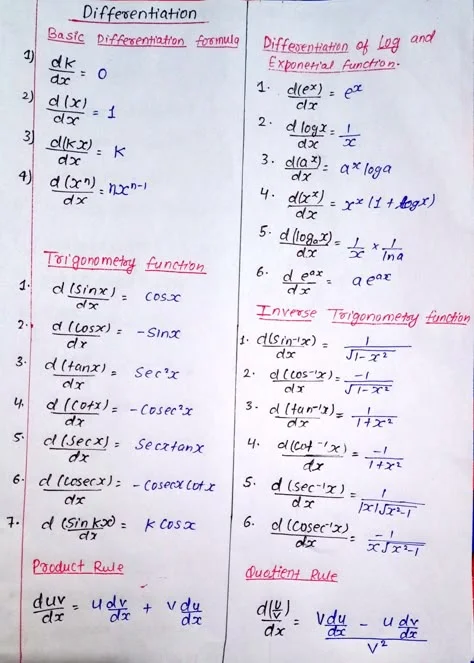 Differentiation
Basic Differentiation formula
1) dk/dx = 0
2) d(x)/dx = 1
3) d(kx)/dx = K
4) d(xⁿ)/dx = nxⁿ⁻¹
Trigonometry function
1. d(sinx)/dx = cosx
2. d(cosx)/dx = -Sinx
3. d(tanx)/dx = Sec²x
4. d(cotx)/dx = -Cosec²x
5. d(secx)/dx = Secxtanx
6. d(cosecx)/dx = -Cosecx Cotx
7. d(sin kx)/dx = K Cosx
Product Rule
duv/dx = u dv/dx + v du/dx
Differentiation of Log and
Exponetial function.
1. d(eˣ)/dx = eˣ
2. d logx/dx = 1/x
3. d(aˣ)/dx = aˣ loga
4. d(xˣ)/dx = xˣ (1 + logx)
5. d(logₐx)/dx = 1/x × 1/lna
6. d eᵃˣ/dx = a eᵃˣ
Inverse Trigonometry function
1. d(sin⁻¹x)/dx = 1/√(1-x²)
2. d(cos⁻¹x)/dx = -1/√(1-x²)
3. d(tan⁻¹x)/dx = 1/(1+x²)
4. d(cot⁻¹x)/dx = -1/(1+x²)
5. d(sec⁻¹x)/dx = 1/(|x|√(x²-1))
6. d(cosec⁻¹x)/dx = -1/(x√(x²-1))
Quotient Rule
d(u/v)/dx = (v du/dx - u dv/dx)/v²